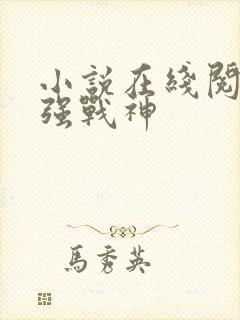 小說在綫閱
强戰神
馬秀英